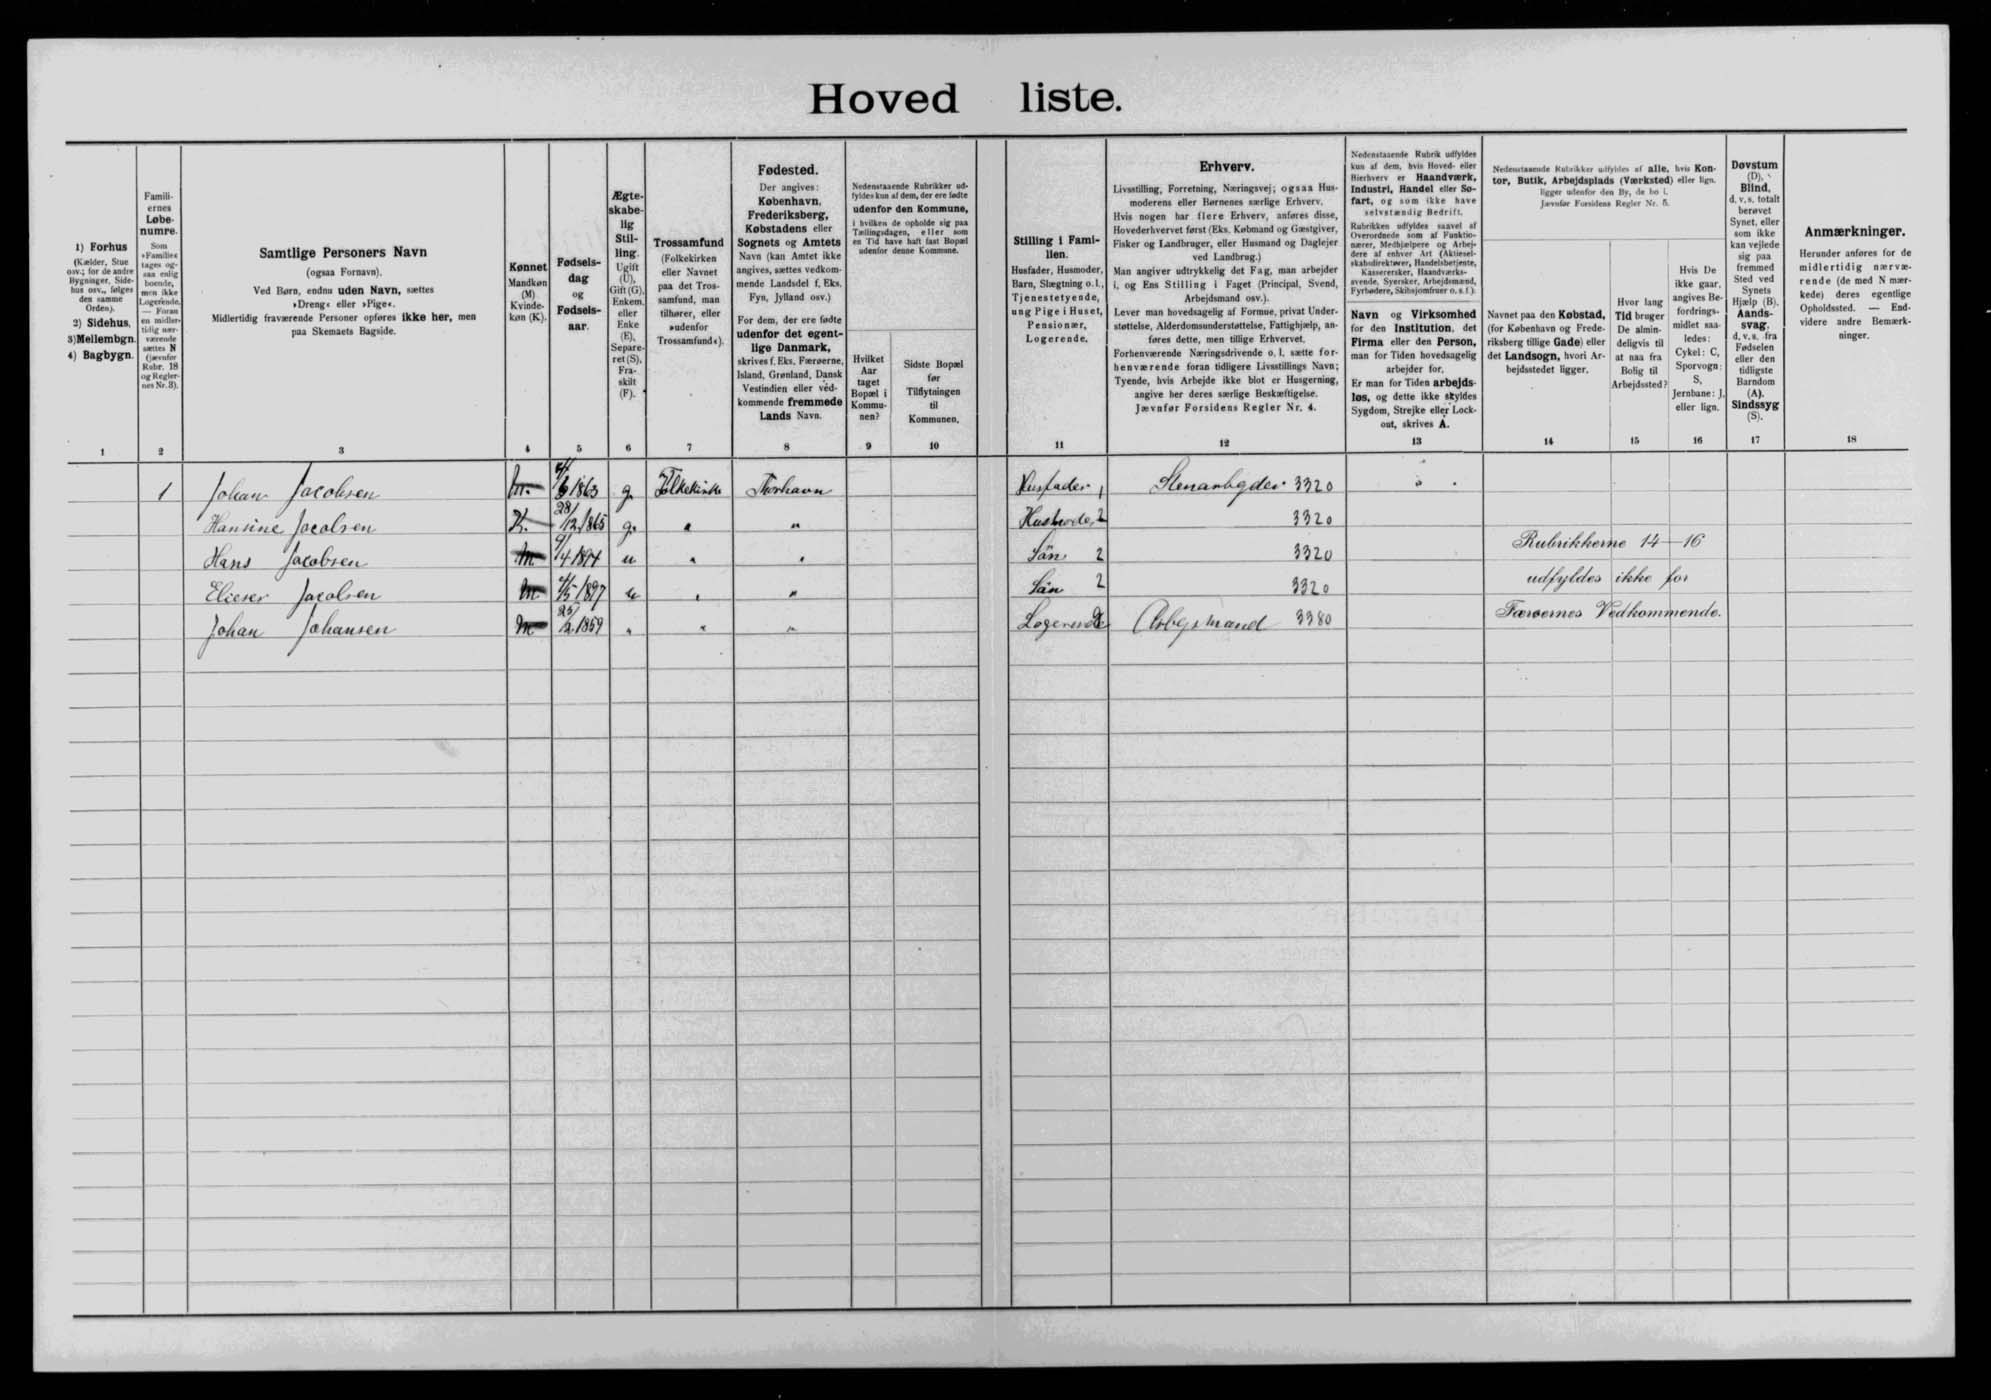 Hoved liste.
1) Forhus
(Kælder, Stue
osv.; for de andre
Bygninger, Side-
hus osv., følges
den samme
Orden).
2) Sidehus,
3) Mellembgn.
4) Bagbygn.
Famili-
ernes
Løbe-
numre.
Som
»Familie«
tages og-
saa enlig
boende,
men ikke
Logerende.
— Foran
en midler-
tidig nær-
værende
sættes N
(jævnfør
Rubr. 18
og Regler-
nes Nr. 3).
Samtlige Personers Navn
(ogsaa Fornavn).
Ved Børn, endnu uden Navn, sættes
»Dreng« eller »Pige«.
Midlertidig fraværende Personer opføres ikke her, men
paa Skemaets Bagside.
Kønnet
Mandkøn
(M)
Kvinde-
køn (K).
Fødsels-
dag
og
Fødsels-
aar.
Ægte-
skabe-
lig
Stil-
ling.
Ugift
(U),
Gift (G),
Enkem.
eller
Enke
(E),
Separe-
ret (S),
Fra-
skilt
(F).
Trossamfund
(Folkekirken
eller Navnet
paa det Tros-
samfund, man
tilhører, eller
»udenfor
Trossamfund«).
Fødested.
Der angives:
København,
Frederiksberg,
Købstadens eller
Sognets og Amtets
Navn (kan Amtet ikke
angives, sættes vedkom-
mende Landsdel f. Eks.
Fyn, Jylland osv.)
For dem, der ere fødte
udenfor det egent-
lige Danmark,
skrives f. Eks. Færøerne,
Island, Grønland, Dansk
Vestindien eller ved-
kommende fremmede
Lands Navn.
Nedenstaaende Rubrikker ud-
fyldes kun af dem, der ere fødte
udenfor den Kommune,
i hvilken de opholde sig paa
Tællingsdagen, eller som
en Tid have haft fast Bopæl
udenfor denne Kommune.
Hvilket
Aar
taget
Bopæl i
Kommu-
nen?
Sidste Bopæl
før
Tilflytningen
til
Kommunen.
Stilling i Fami-
lien.
Husfader, Husmoder,
Barn, Slægtning o. l.,
Tjenestetyende,
ung Pige i Huset,
Pensionær,
Logerende.
Erhverv.
Livsstilling, Forretning, Næringsvej; ogsaa Hus-
moderens eller Børnenes særlige Erhverv.
Hvis nogen har flere Erhverv, anføres disse,
Hovederhvervet først (Eks. Købmand og Gæstgiver,
Fisker og Landbruger, eller Husmand og Daglejer
ved Landbrug.)
Man angiver udtrykkelig det Fag, man arbejder
i, og Ens Stilling i Faget (Principal, Svend,
Arbejdsmand osv.).
Lever man hovedsagelig af Formue, privat Under-
støttelse, Alderdomsunderstøttelse, Fattighjælp, an-
føres dette, men tillige Erhvervet.
Forhenværende Næringsdrivende o. l. sætte for-
henværende foran tidligere Livsstillings Navn;
Tyende, hvis Arbejde ikke blot er Husgerning,
angive her deres særlige Beskæftigelse.
Jævnfør Forsidens Regler Nr. 4.
Nedenstaaende Rubrik udfyldes
kun af dem, hvis Hoved- eller
Bierhverv er Haandværk,
Industri, Handel eller Sø-
fart, og som ikke have
selvstændig Bedrift.
Rubrikken udfyldes saavel af
Overordnede som af Funktio-
nærer, Medhjælpere og Arbej-
dere af enhver Art (Aktiesel-
skabsdirektører, Handelsbetjente,
Kassererersker, Haandværks-
svende, Syersker, Arbejdsmænd,
Fyrbødere, Skibsjomfruer o. s. f.).
Navn og Virksomhed
for den Institution, det
Firma eller den Person,
man for Tiden hovedsagelig
arbejder for.
Er man for Tiden arbejds-
løs, og dette ikke skyldes
Sygdom, Strejke eller Lock-
out, skrives A.
Nedenstaaende Rubrikker udfyldes af alle, hvis Kon-
tor, Butik, Arbejdsplads (Værksted) eller lign.
ligger udenfor den By, de bo i.
Jævnfør Forsidens Regler Nr. 5.
Navnet paa den Købstad,
(for København og Frede-
riksberg tillige Gade) eller
det Landsogn, hvori Ar-
bejdsstedet ligger.
Hvor lang
Tid bruger
De almin-
deligvis til
at naa fra
Bolig til
Arbejdssted?
Hvis De
ikke gaar,
angives Be-
fordrings-
midlet saa-
ledes:
Cykel: C,
Sporvogn:
S,
Jernbane: J,
eller lign.
Døvstum
(D),
Blind,
d. v. s. totalt
berøvet
Synet, eller
som ikke
kan vejlede
sig paa
fremmed
Sted ved
Synets
Hjælp (B).
Aands-
svag,
d. v. s. fra
Fødselen
eller den
tidligste
Barndom
(A).
Sindssyg
(S).
Anmærkninger.
Herunder anføres for de
midlertidig nærvæ-
rende (de med N mær-
kede) deres egentlige
Opholdssted. — End-
videre andre Bemærk-
ninger.
1 2 3 4 5 6 7 8 9 10 11 12 13 14 15 16 17 18
1 Johan Jacobsen M. 1863 g. Folkekirke Thorhavn Husfader 1 Stenarbejder 3320
Hansine Jacobsen K. 28/12 1865 g. " " Husmoder 2 3320
Hans Jacobsen M 9/4 1894 u " " Sön 2 3320
Rubrikkerne 14—16
Elieser Jacobsen M 4/5 1897 u " " Sön 2 3320
udfyldes ikke for
Johan Johansen M 25/2 1859 " " " Logerende Arbejsmand 3380
Færøernes Vedkommende.